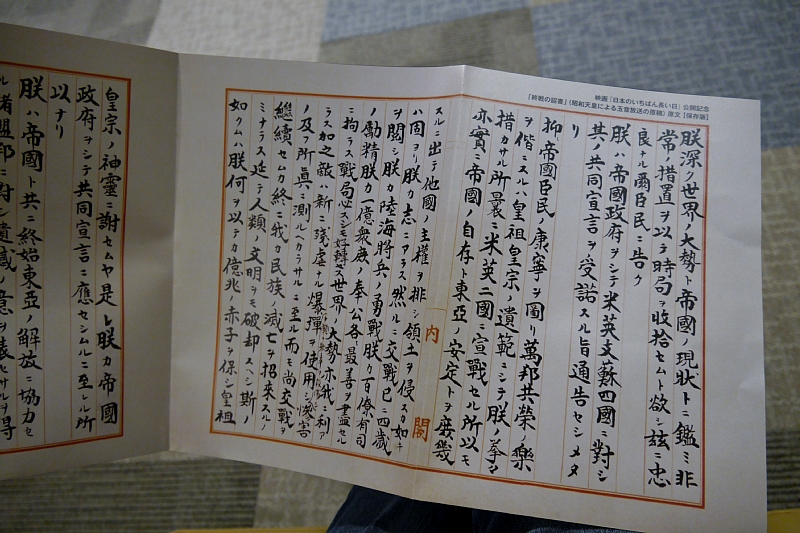 映画「日本のいちばん長い日」公開記念
「終戦の詔書」(昭和天皇による玉音放送の原稿)原文【保存版】
朕深ク世界ノ大勢ト帝國ノ現狀トニ鑑ミ非
常ノ措置ヲ以テ時局ヲ收拾セムト欲シ茲ニ忠
良ナル爾臣民ニ告ク
朕ハ帝國政府ヲシテ米英支蘇四國ニ對シ
其ノ共同宣言ヲ受諾スル旨通告セシメタ
リ
抑帝國臣民ノ康寧ヲ圖リ萬邦共榮ノ樂
ヲ偕ニスルハ皇祖皇宗ノ遺範ニシテ朕ノ拳々
措カサル所曩ニ米英二國ニ宣戰セル所以モ
亦實ニ帝國ノ自存ト東亞ノ安定トヲ庶幾
内閣
スルニ出テ他國ノ主權ヲ排シ領土ヲ侵スカ如キ
ハ固ヨリ朕カ志ニアラス然ルニ交戰已ニ四歲
ヲ閱シ朕カ陸海將兵ノ勇戰朕カ百僚有司
ノ勵精朕カ一億衆庶ノ奉公各最善ヲ盡セル
ニ拘ラス戰局必スシモ好轉セス世界ノ大勢亦我ニ利ア
ラス加之敵ハ新ニ殘虐ナル爆彈ヲ使用シ慘害
ノ及フ所眞ニ測ルヘカラサルニ至ル而モ尚交戰ヲ
繼續セムカ終ニ我カ民族ノ滅亡ヲ招來スルノ
ミナラス延テ人類ノ文明ヲモ破却スヘシ斯ノ
如クムハ朕何ヲ以テカ億兆ノ赤子ヲ保シ皇祖
皇宗ノ神靈ニ謝セムヤ是レ朕カ帝國
政府ヲシテ共同宣言ニ應セシムルニ至レル所
以ナリ
朕ハ帝國ト共ニ終始東亞ノ解放ニ協力セ
ル諸盟邦ニ對シ遺憾ノ意ヲ表セサルヲ得